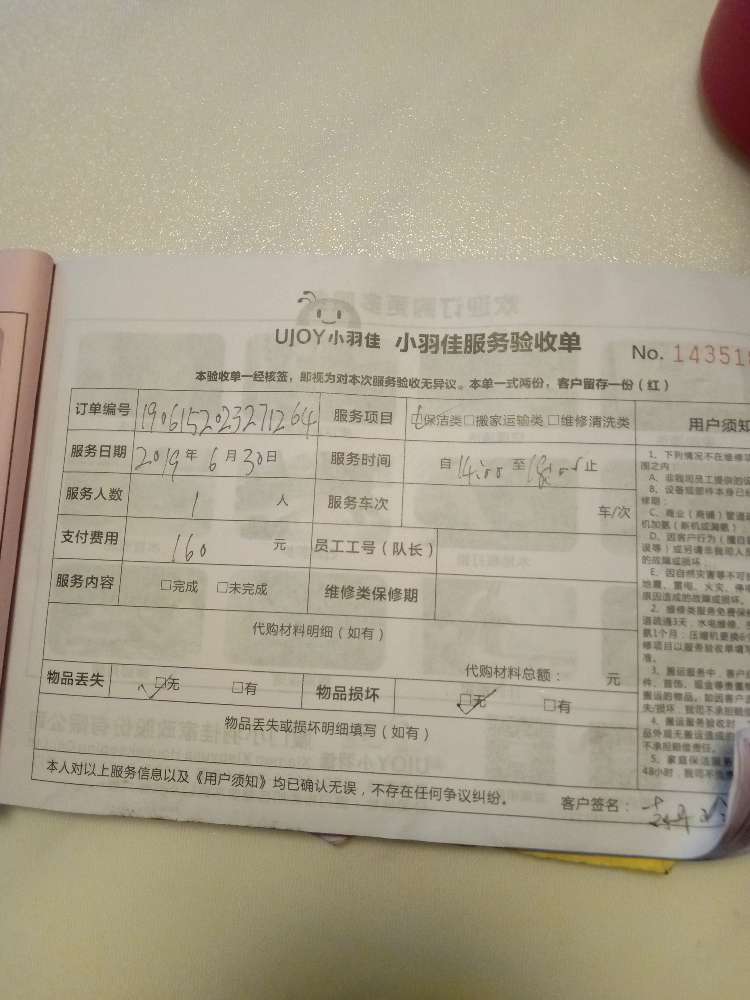 UJOY小羽佳 小羽佳服务验收单 No. 14351
本验收单一经核签，即视为对本次服务验收无异议。本单一式两份，客户留存一份（红）
订单编号 1906152023271264 服务项目 □保洁类□搬家运输类□维修清洗类
服务日期 2019年6月30日 服务时间 自14:00至18:00止
服务人数 1 人 服务车次 车/次
支付费用 160 元 员工工号（队长）
服务内容 □完成 □未完成 维修类保修期
代购材料明细（如有）
代购材料总额： 元
物品丢失 □无 □有 物品损坏 □无 □有
物品丢失或损坏明细填写（如有）
本人对以上服务信息以及《用户须知》均已确认无误，不存在任何争议纠纷。
客户签名：
用户须知
1、下列情况不在维修
围之内：
A、非我司员工提供的
B、设备或部件本身已
修期；
C、商业（商铺）管道
机加氨（新机或漏氨）
D、因客户行为（擅自
误等）或另请非我司人
的故障或损坏；
E、因自然灾害等不可
地震、雷电、火灾、停
原因造成的故障或损坏。
2、维修类服务免费保
道疏通3天，水电维修、
氨1个月；压缩机更换6
修项目以服务验收单填
准。
3、搬运服务中，客户
件、首饰、现金等贵重
搬运的物品，如因客户
失/损坏，我司不承担赔
4、搬运服务验收时
品外观无搬运造成
不承担赔偿责任。
5、家庭保洁服务
48小时，我司不